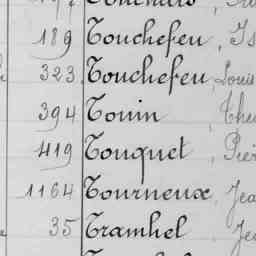 189 Touchefeu, Is
323 Touchefeu, Louis
394 Touin, The
419 Touquet, Pier
1164 Tourneux, Jea
35 Tramhel, Je